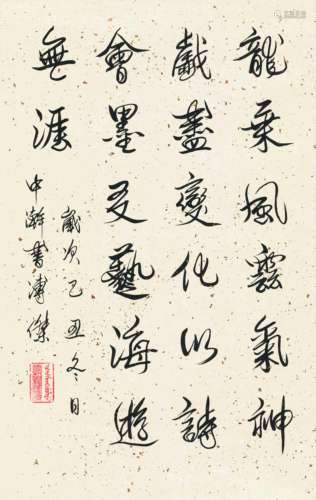 龍乘風雲氣神
戲盡變化以詩
會墨友藝海遊
無涯
歲次乙丑冬日
中澣書溥傑